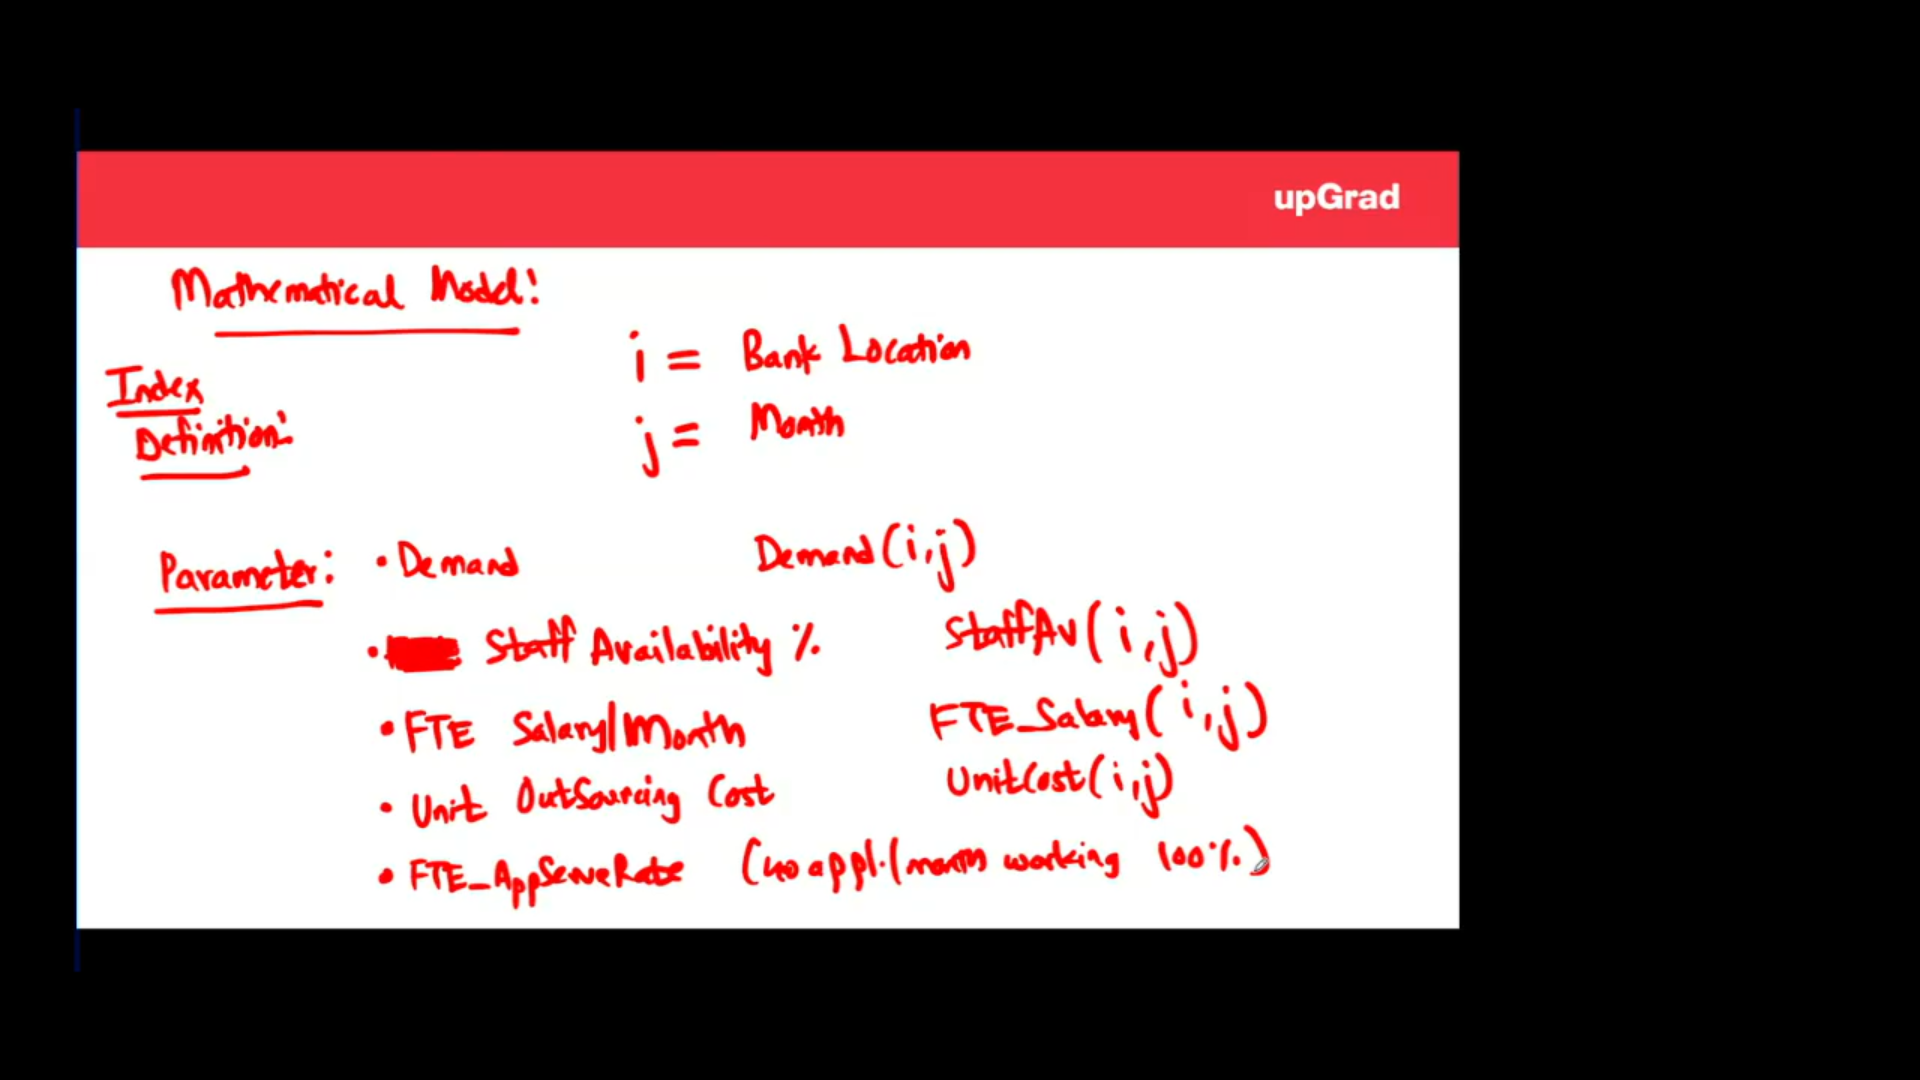 upGrad
Mathematical Model:
i = Bank Location
Index
Definition:
j = Month
Parameter: • Demand Demand(i,j)
• Staff Availability % StaffAv(i,j)
• FTE Salary/Month FTE_Salary(i,j)
• Unit OutSourcing Cost UnitCost(i,j)
• FTE_AppServeRate (40 appl./month working 100%)